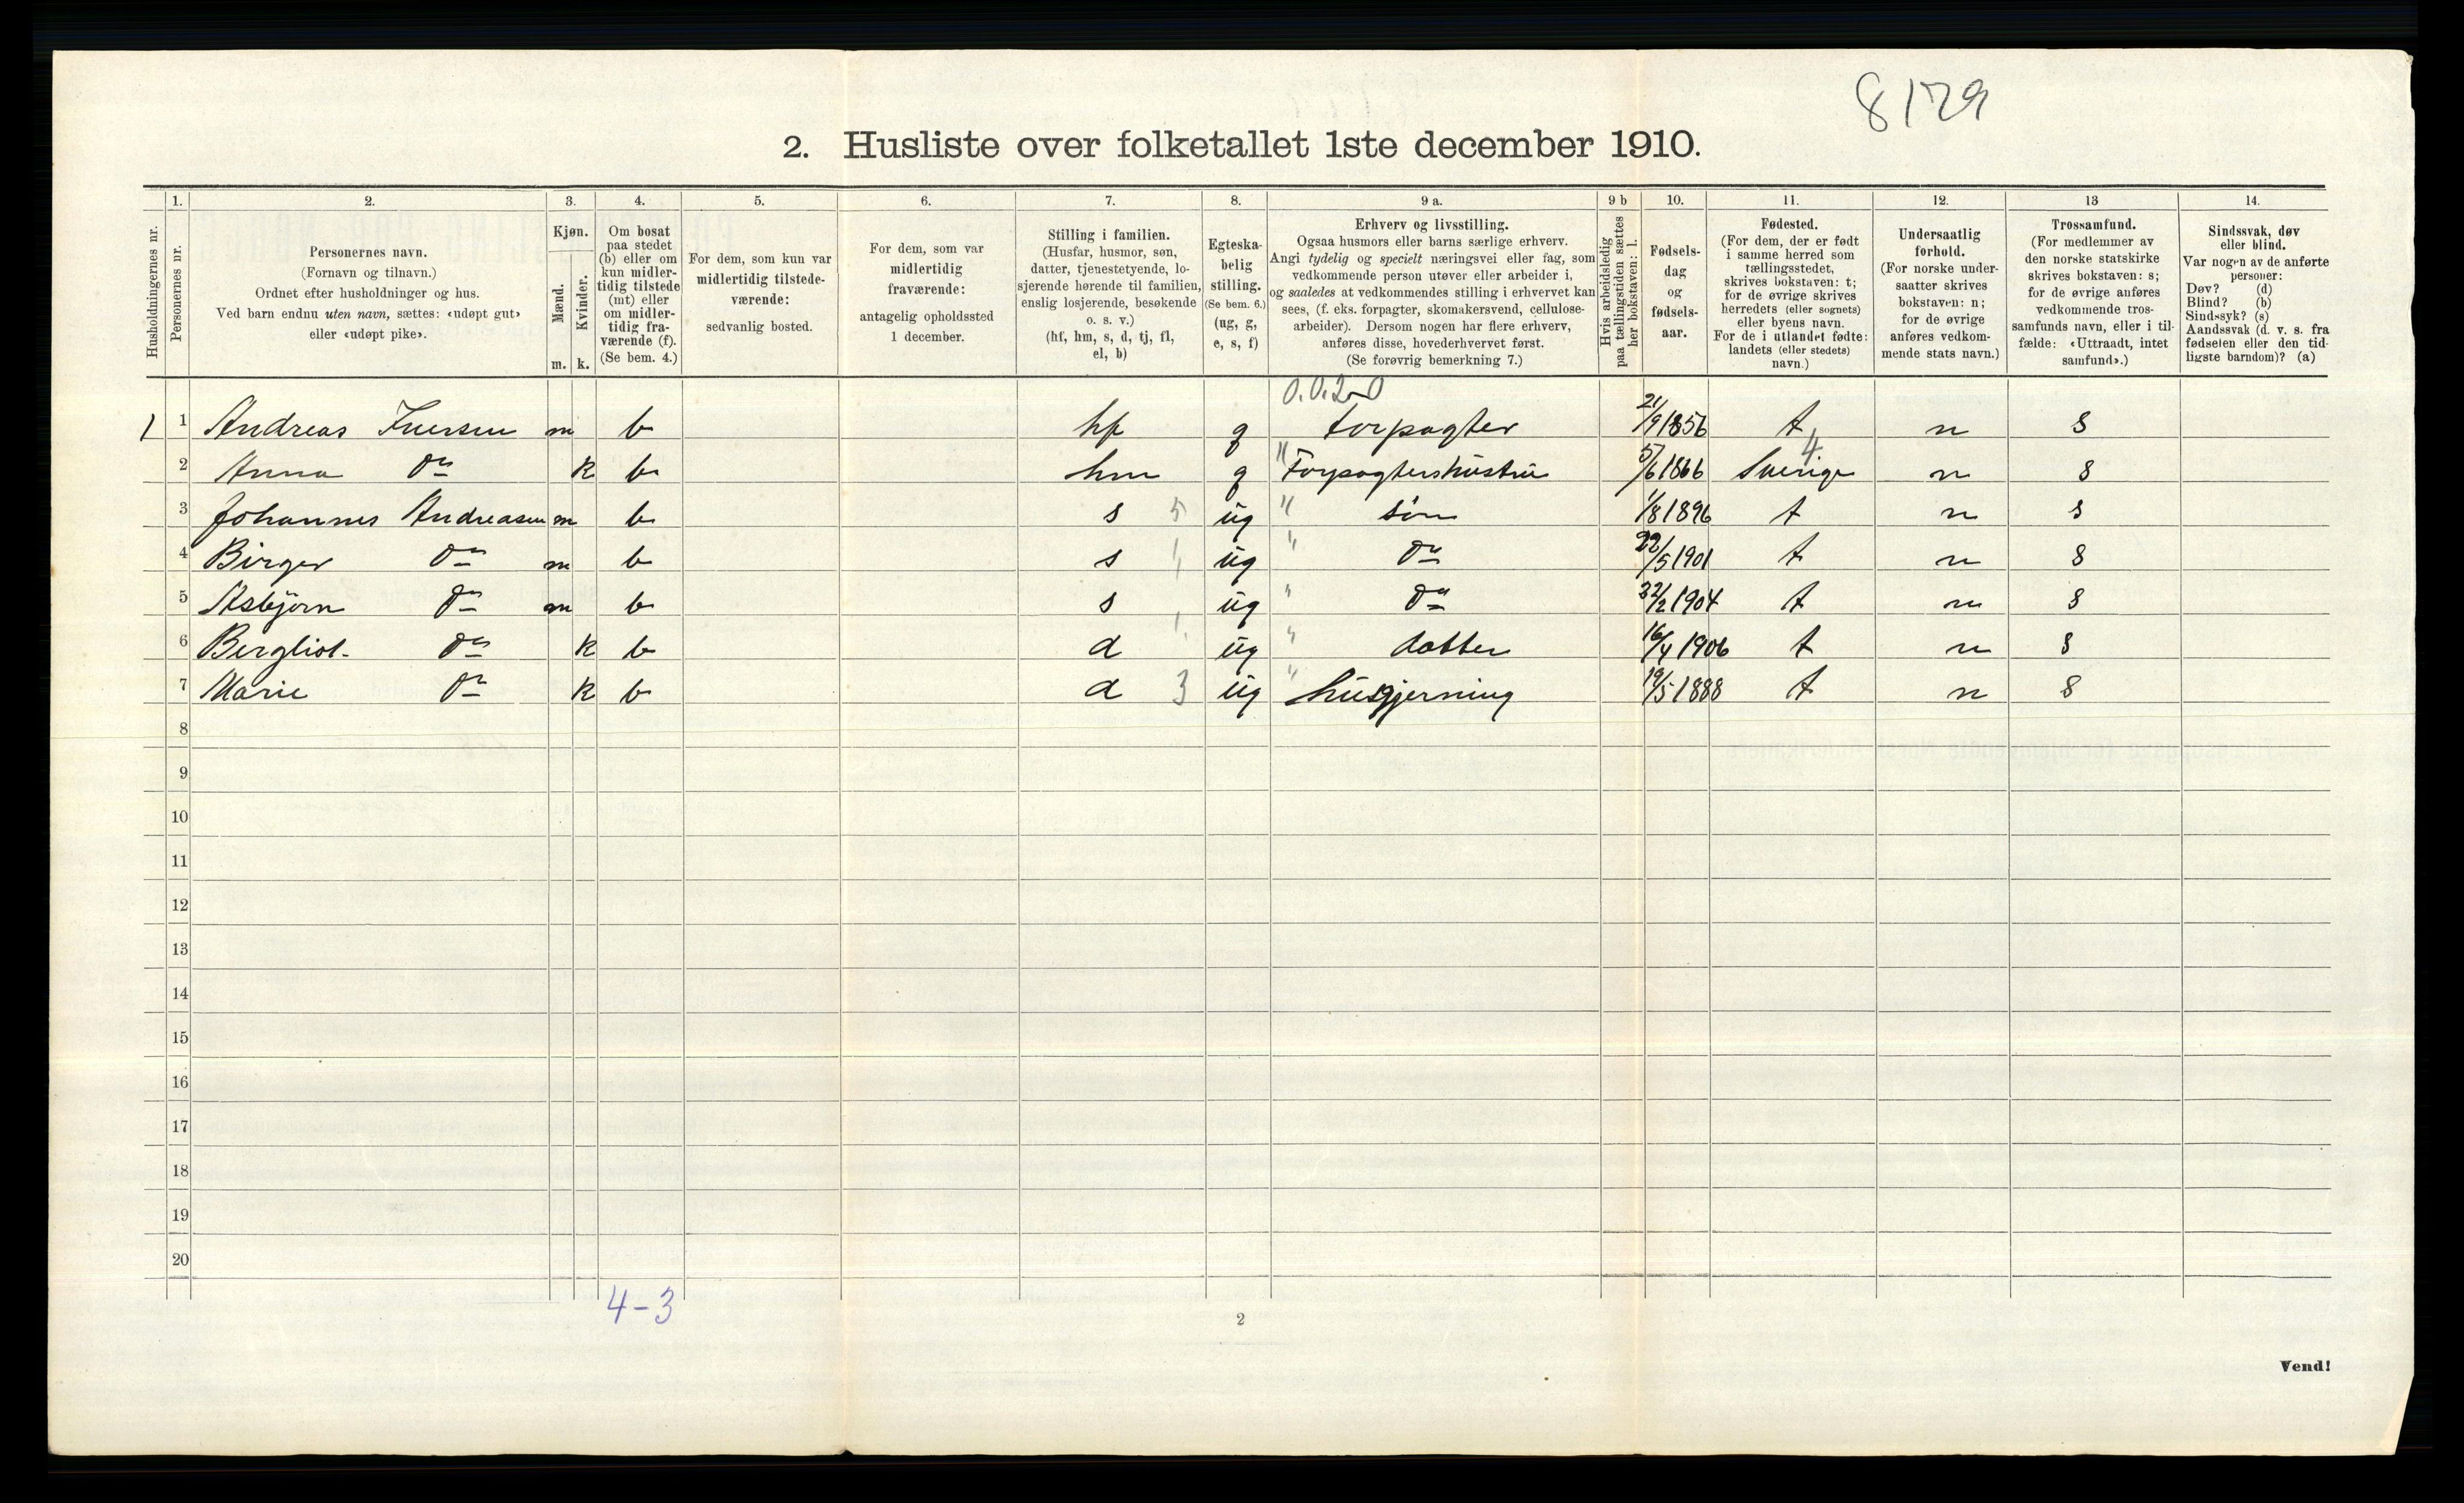 8179
2. Husliste over folketallet 1ste december 1910.
1. 2. 3. 4. 5. 6. 7. 8. 9 a. 9 b 10. 11. 12. 13 14.
Husholdningernes nr.
Personernes nr.
Personernes navn.
(Fornavn og tilnavn.)
Ordnet efter husholdninger og hus.
Ved barn endnu uten navn, sættes: «udøpt gut»
eller «udøpt pike».
Kjøn.
Mænd.
Kvinder.
m. k.
Om bosat
paa stedet
(b) eller om
kun midler-
tidig tilstede
(mt) eller
om midler-
tidig fra-
værende (f).
(Se bem. 4.)
For dem, som kun var
midlertidig tilstede-
værende:
sedvanlig bosted.
For dem, som var
midlertidig
fraværende:
antagelig opholdssted
1 december.
Stilling i familien.
(Husfar, husmor, søn,
datter, tjenestetyende, lo-
sjerende hørende til familien,
enslig losjerende, besøkende
o. s. v.)
(hf, hm, s, d, tj, fl,
el, b)
Egteska-
belig
stilling.
(Se bem. 6.)
(ug, g,
e, s, f)
Erhverv og livsstilling.
Ogsaa husmors eller barns særlige erhverv.
Angi tydelig og specielt næringsvei eller fag, som
vedkommende person utøver eller arbeider i,
og saaledes at vedkommendes stilling i erhvervet kan
sees, (f. eks. forpagter, skomakersvend, cellulose-
arbeider). Dersom nogen har flere erhverv,
anføres disse, hovederhvervet først.
(Se forøvrig bemerkning 7.)
Hvis arbeidsledig
paa tællingstiden sættes
her bokstaven: l.
Fødsels-
dag
og
fødsels-
aar.
Fødested.
(For dem, der er født
i samme herred som
tællingsstedet,
skrives bokstaven: t;
for de øvrige skrives
herredets (eller sognets)
eller byens navn.
For de i utlandet fødte:
landets (eller stedets)
navn.)
Undersaatlig
forhold.
(For norske under-
saatter skrives
bokstaven: n;
for de øvrige
anføres vedkom-
mende stats navn.)
Trossamfund.
(For medlemmer av
den norske statskirke
skrives bokstaven: s;
for de øvrige anføres
vedkommende tros-
samfunds navn, eller i til-
fælde: «Uttraadt, intet
samfund».)
Sindssvak, døv
eller blind.
Var nogen av de anførte
personer:
Døv? (d)
Blind? (b)
Sindssyk? (s)
Aandssvak (d. v. s. fra
fødselen eller den tid-
ligste barndom)? (a)
0.0.2-0
1 1 Andreas Iversen m b hf g forpagter 21/9 1856 t n s
2 Anna do k b hm g " Forpagtershustru 5/6 1866 Sverige 4 n s
3 Johannes Andreasen m b s 5 ug " søn 1/8 1896 t n s
4 Birger do m b s " ug " do 22/5 1901 t n s
5 Asbjørn do m b s ug " do 22/2 1904 t n s
6 Bergliot do k b d " ug " datter 16/4 1906 t n s
7 Marie do k b d 3 ug " husgjerning 19/5 1888 t n s
8
9
10
11
12
13
14
15
16
17
18
19
20
4-3
2
Vend!